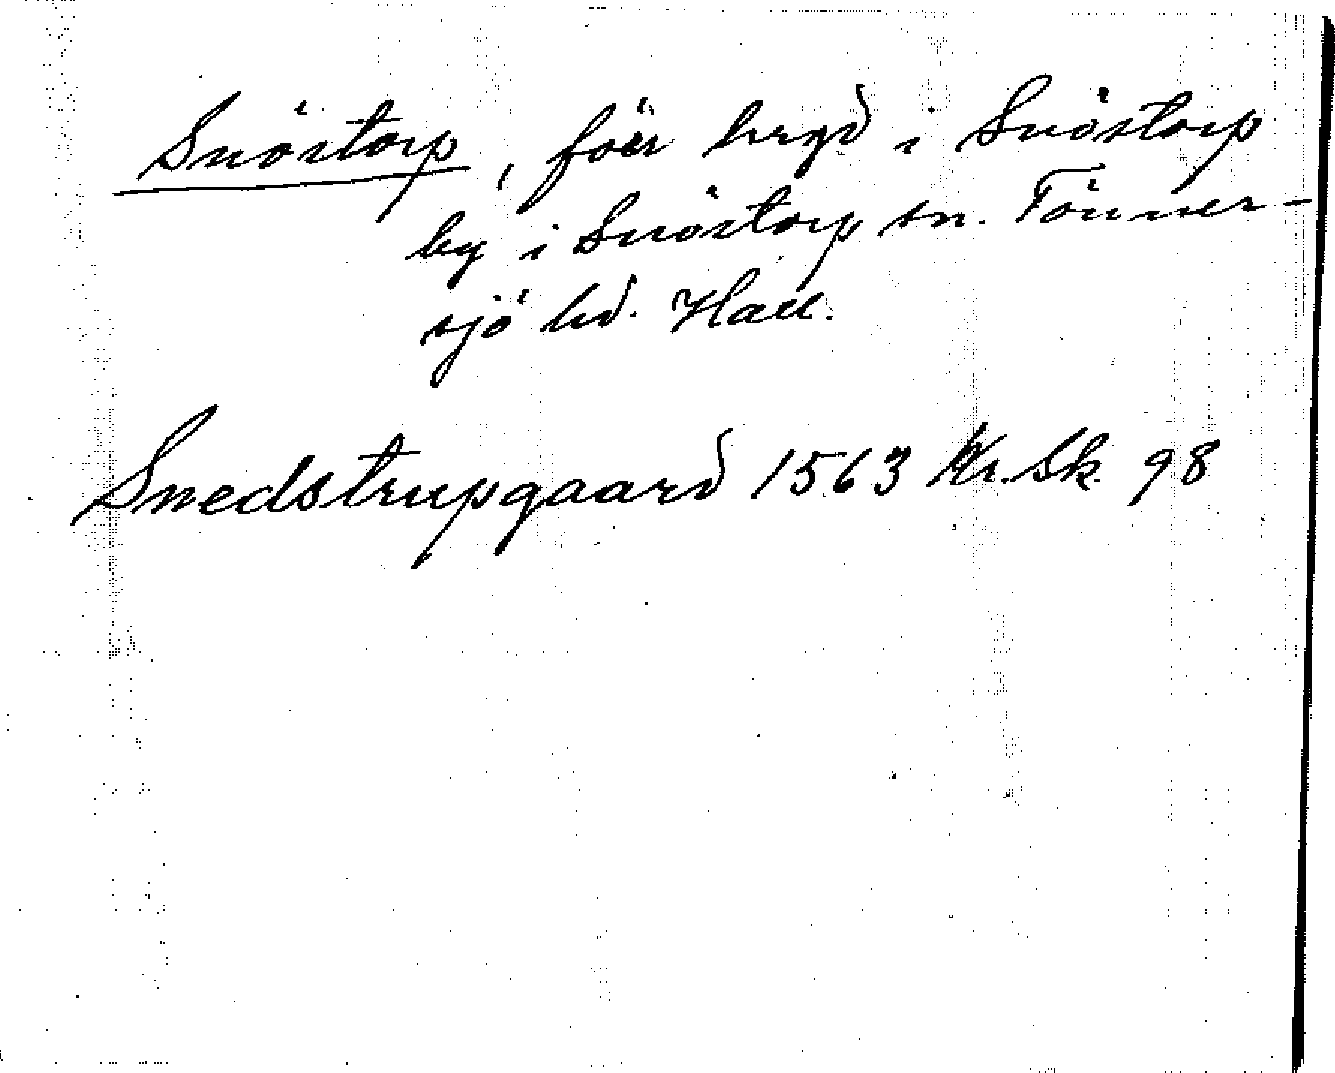 Snöstorp, förr hrgd i Snöstorp
by i Snöstorp sn. Tönner-
sjö hd. Hall.
Snedstrupgaard 1563 Kr. Sk. 98